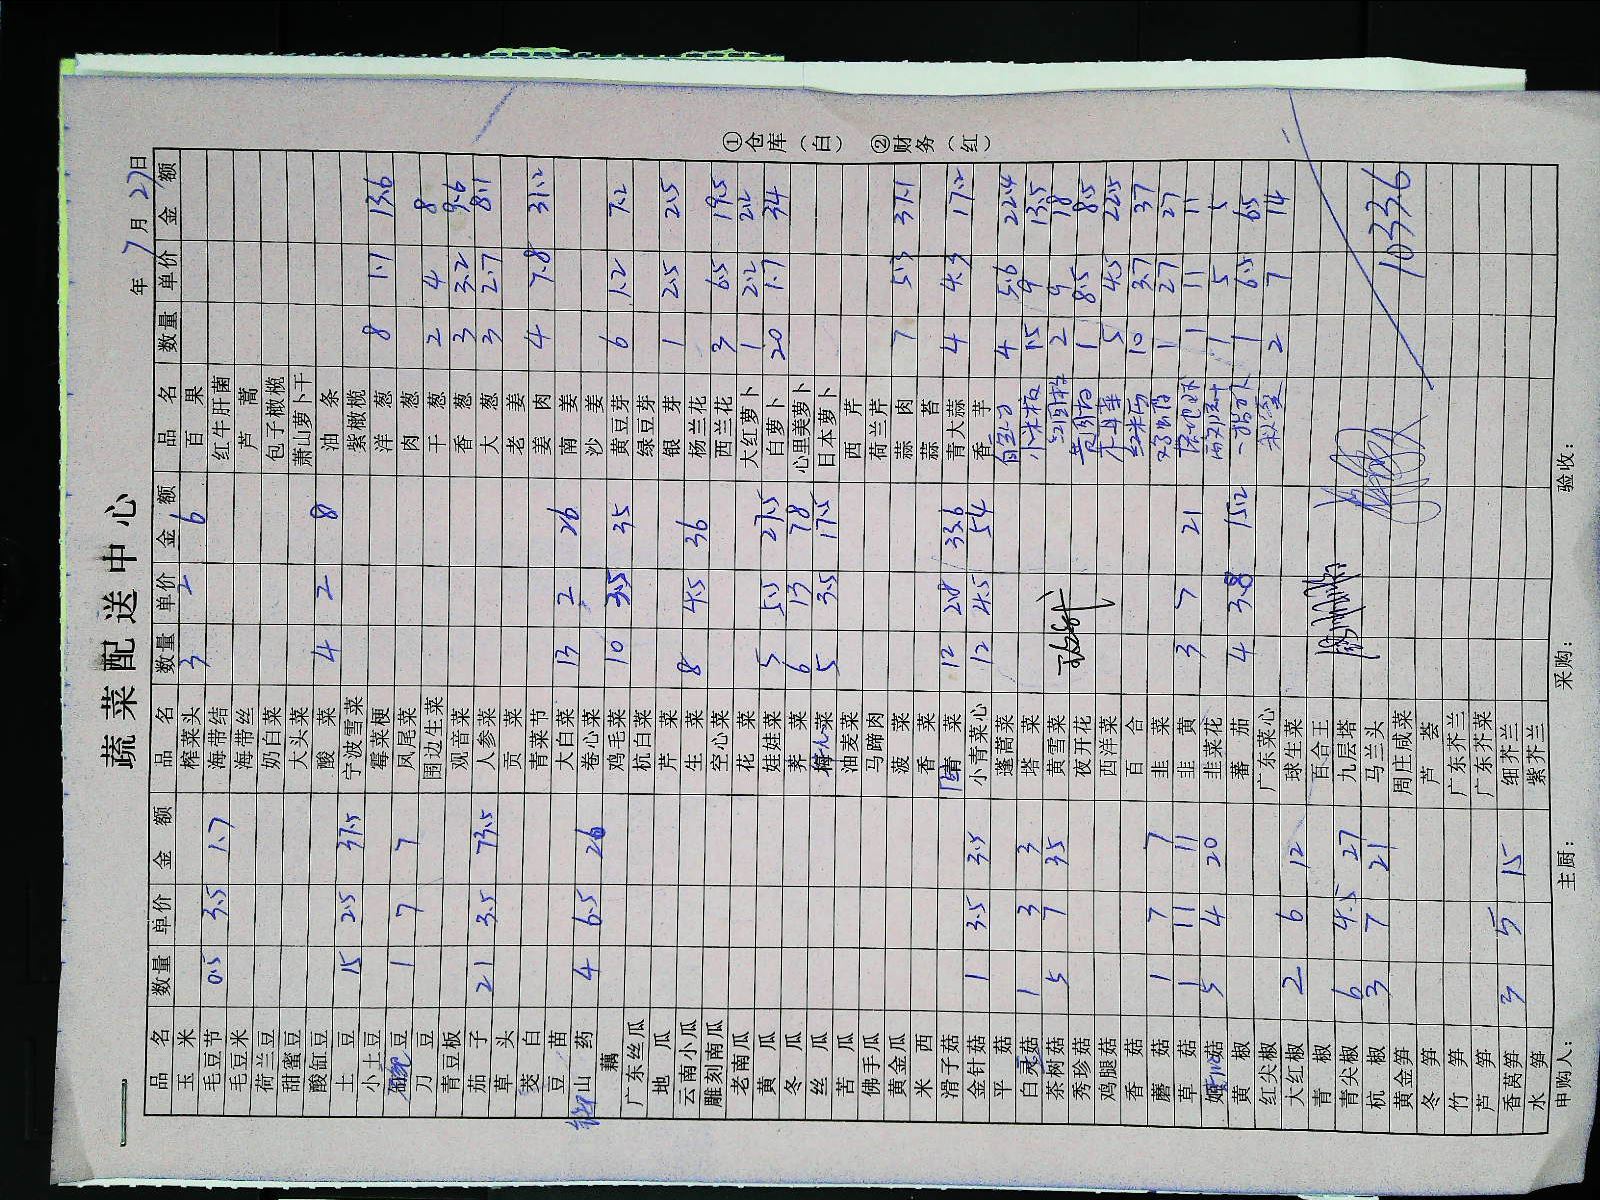 蔬菜配送中心
年 7月27日
品名 数量 单价 金额 品名 数量 单价 金额 品名 数量 单价 金额
玉米 榨菜头 3 2 6 百果
毛豆节 0.5 3.5 1.7 海带结 红牛肝菌
毛豆米 海带丝 芦蒿
荷兰豆 奶白菜 包子橄榄
甜蜜豆 大头菜 萧山萝卜干
酸缸豆 酸菜 4 2 8 油条
土豆 15 2.5 37.5 宁波雪菜 紫橄榄
小土豆 霉菜梗 洋葱 8 1.7 13.6
豆 1 7 7 凤尾菜 肉葱
刀豆 围边生菜 干葱 2 4 8
青豆板 观音菜 香葱 3 3.2 9.6
茄子 21 3.5 73.5 人参菜 大葱 3 2.7 8.1
草头 贡菜 老姜
菱白 青菜节 姜肉 4 7.8 31.2
豆苗 大白菜 13 2 26 南姜
山药 4 6.5 26 卷心菜 沙姜
藕 鸡毛菜 10 3.5 35 黄豆芽 6 1.2 7.2
广东丝瓜 杭白菜 绿豆芽
地瓜 芹菜 银芽 1 2.5 2.5
云南小瓜 生菜 8 4.5 36 杨兰花
雕刻南瓜 空心菜 西兰花 3 6.5 19.5
老南瓜 花菜 大红萝卜 1 2.2 2.2
黄瓜 娃娃菜 5 5.5 27.5 白萝卜 20 1.7 34
冬瓜 荠菜 6 13 78 心里美萝卜
丝瓜 菜 5 3.5 17.5 日本萝卜
苦瓜 油麦菜 西芹
佛手瓜 马蹄肉 荷兰芹
黄金瓜 菠菜 蒜肉 7 5.3 37.1
米西 香菜 蒜苔
滑子菇 青菜 12 2.8 33.6 青大蒜 4 4.3 17.2
金针菇 1 3.5 3.5 小青菜心 12 4.5 54 香芋
平菇 蓬蒿菜 4 5.6 22.4
白灵菇 1 3 3 塔菜 小米椒 1.5 9 13.5
茶树菇 5 7 35 黄雪菜 红圆椒 2 9 18
秀珍菇 夜开花 黄圆椒 1 8.5 8.5
鸡腿菇 西洋菜 5 4.5 22.5
香菇 百合 10 3.7 37
蘑菇 1 7 7 韭菜 1 27 27
草菇 1 11 11 韭黄 3 7 21 1 11 11
菇 5 4 20 韭菜花 1 5 5
黄椒 蕃茄 4 3.8 15.2 1 6.5 6.5
红尖椒 广东菜心 2 7 14
大红椒 2 6 12 球生菜
青椒 百合王
青尖椒 6 4.5 27 九层塔
杭椒 3 7 21 马兰头 1033.6
黄金笋 周庄咸菜
冬笋 芦荟
竹笋 广东芥兰
芦笋 广东芥菜
香莴笋 3 5 15 细芥兰
水笋 紫芥兰
申购人： 主厨： 采购： 验收：
①仓库（白） ②财务（红）